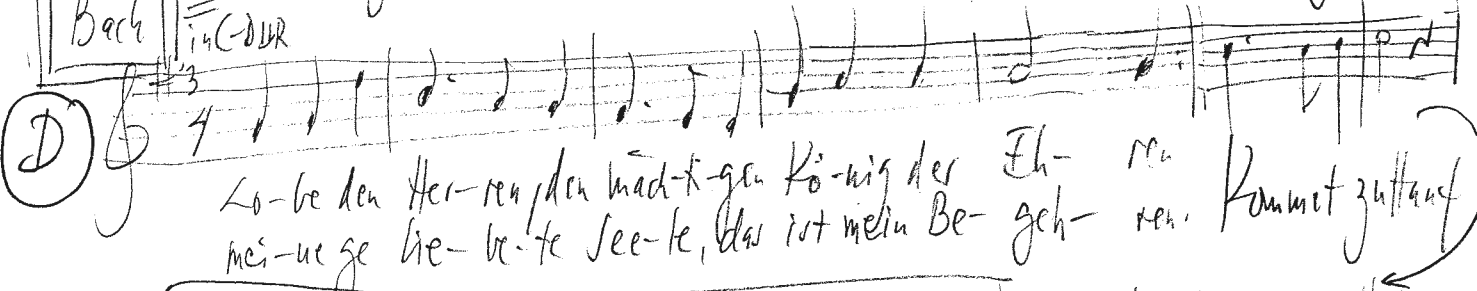 Bach
in C-DUR
D
3
4
Lo-be den Her-ren, den mäch-ti-gen Kö-nig der Eh- ren
mei-ne ge lie-be-te See-le, das ist mein Be- geh- ren. Kommet zuHauf